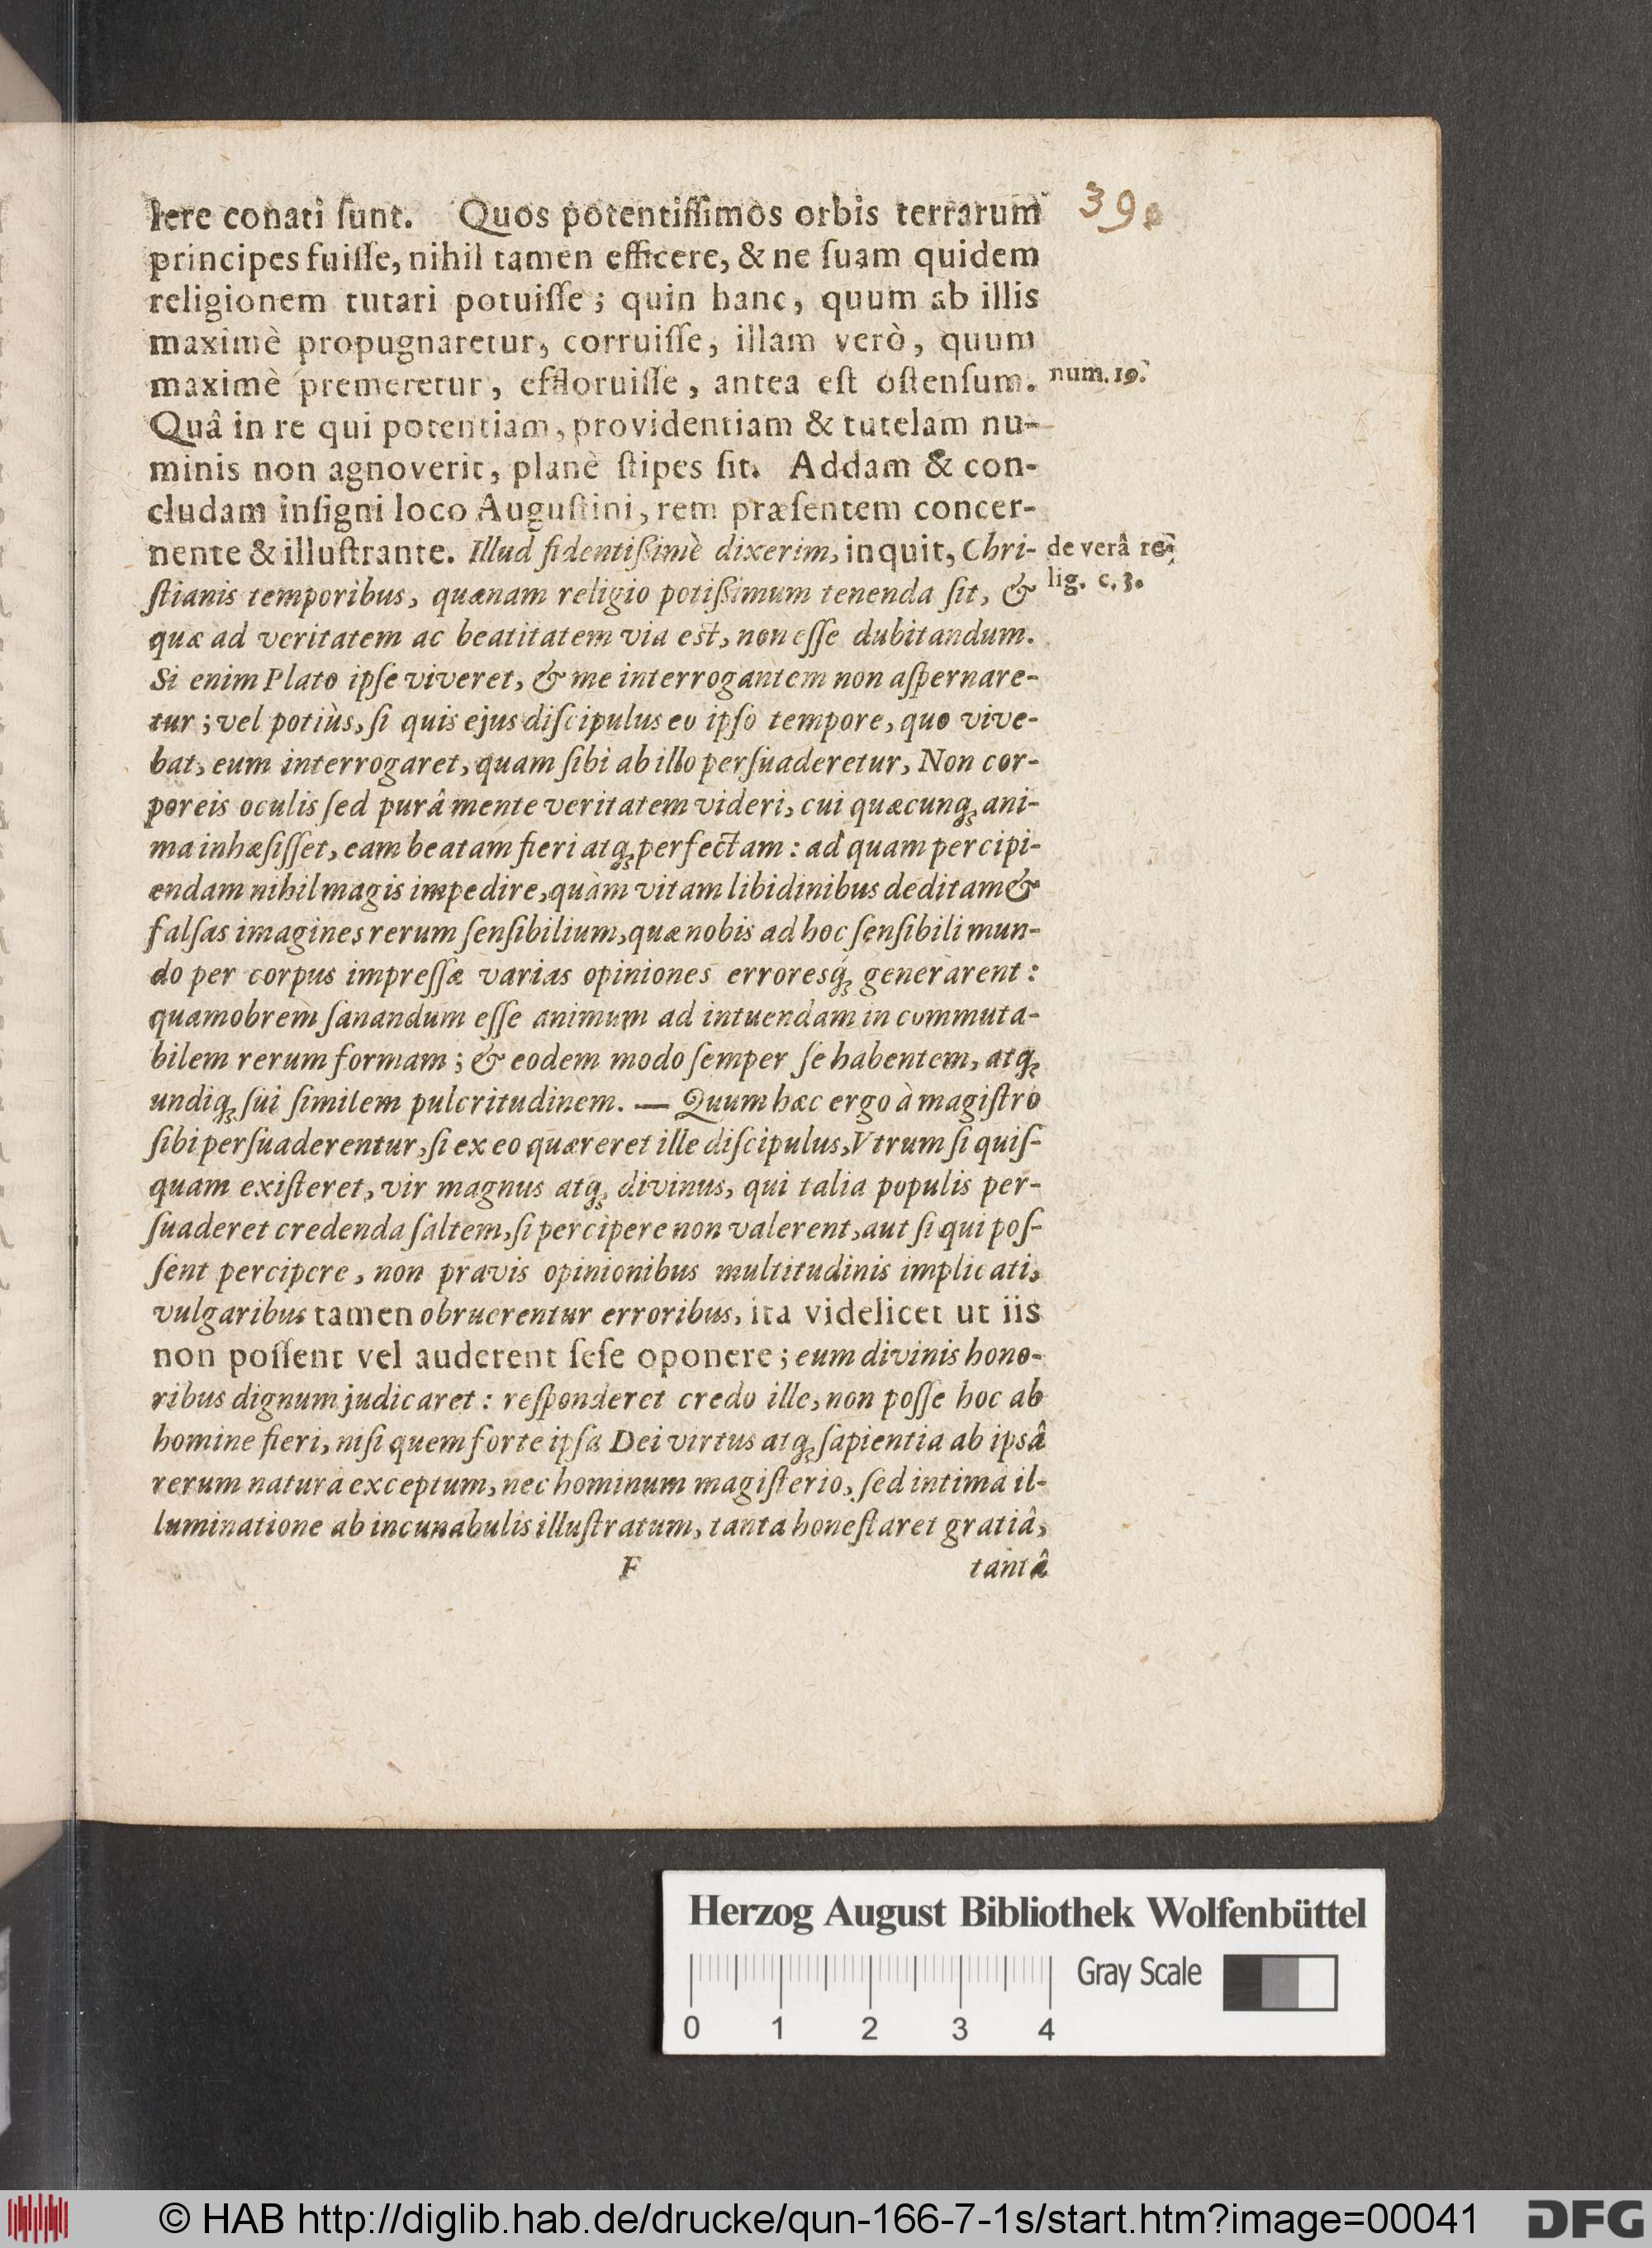 lere conati ſunt. Quos potentiſſimos orbis terrarum
39.
principes fuiſſe, nihil tamen efficere, & ne ſuam quidem
religionem tutari potuiſſe; quin hanc, quum ab illis
maximè propugnaretur, corruiſſe, illam verò, quum
maximè premeretur, effloruiſſe, antea eſt oſtenſum.
num. 19.
Quâ in re qui potentiam, providentiam & tutelam nu-
minis non agnoverit, planè ſtipes ſit. Addam & con-
cludam inſigni loco Auguſtini, rem præſentem concer-
nente & illuſtrante. Illud fidentiſsimè dixerim, inquit, Chri-
de verâ re-
lig. c. 3.
ſtianis temporibus, quænam religio potiſsimum tenenda ſit, &
quæ ad veritatem ac beatitatem via est, non eſſe dubitandum.
Si enim Plato ipſe viveret, & me interrogantem non aſpernare-
tur; vel potiùs, ſi quis ejus diſcipulus eo ipſo tempore, quo vive-
bat, eum interrogaret, quam ſibi ab illo perſuaderetur, Non cor-
poreis oculis ſed purâ mente veritatem videri, cui quæcunq; ani-
ma inhæſiſſet, eam beatam fieri atq; perfectam: ad quam percipi-
endam nihil magis impedire, quàm vitam libidinibus deditam &
falſas imagines rerum ſenſibilium, quæ nobis ad hoc ſenſibili mun-
do per corpus impreſſæ varias opiniones erroresq́; generarent:
quamobrem ſanandum eſſe animum ad intuendam in commuta-
bilem rerum formam; & eodem modo ſemper ſe habentem, atq;
undiq; ſui ſimilem pulcritudinem. — Quum hæc ergo à magiſtro
ſibi perſuaderentur, ſi ex eo quæreret ille diſcipulus, Vtrum ſi quiſ-
quam exiſteret, vir magnus atq; divinus, qui talia populis per-
ſuaderet credenda ſaltem, ſi percipere non valerent, aut ſi qui poſ-
ſent percipere, non pravis opinionibus multitudinis implicati,
vulgaribus tamen obruerentur erroribus, ita videlicet ut iis
non poſſent vel auderent ſeſe oponere; eum divinis hono-
ribus dignum judicaret: reſponderet credo ille, non poſſe hoc ab
homine fieri, niſi quem forte ipſa Dei virtus atq; ſapientia ab ipsâ
rerum natura exceptum, nec hominum magiſterio, ſed intima il-
luminatione ab incunabulis illuſtratum, tanta honeſtaret gratiâ,
F
tantâ
Herzog August Bibliothek Wolfenbüttel
Gray Scale
0 1 2 3 4
© HAB http://diglib.hab.de/drucke/qun-166-7-1s/start.htm?image=00041
DFG